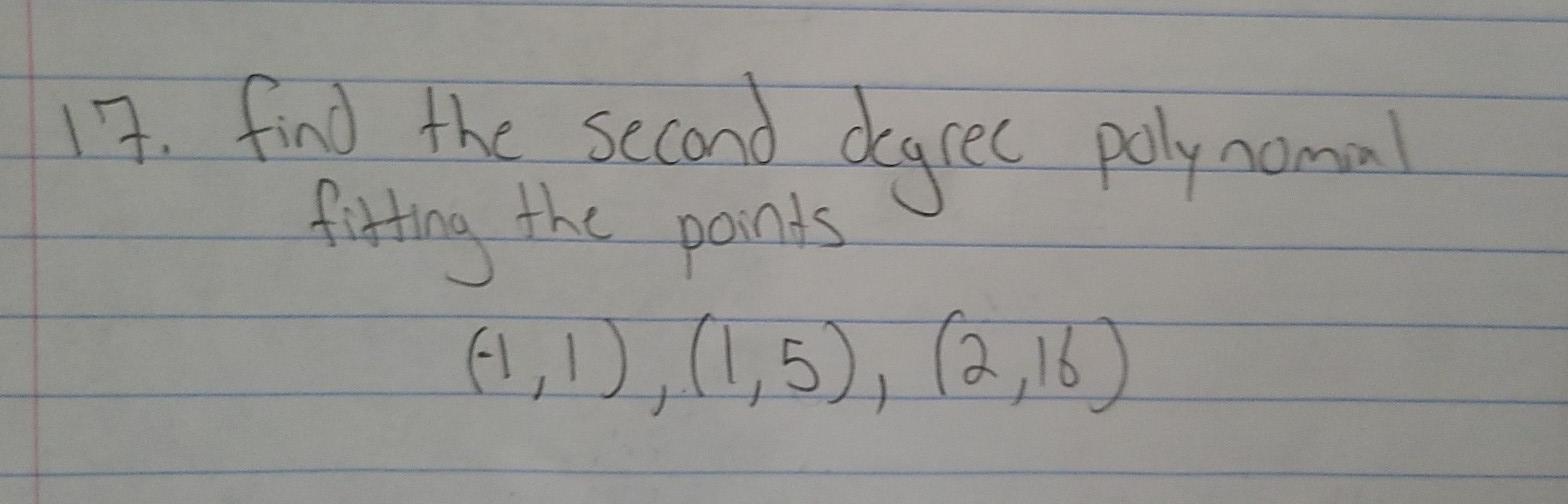 17. find the second degree polynomial
fitting the points
(-1,1), (1,5), (2,16)